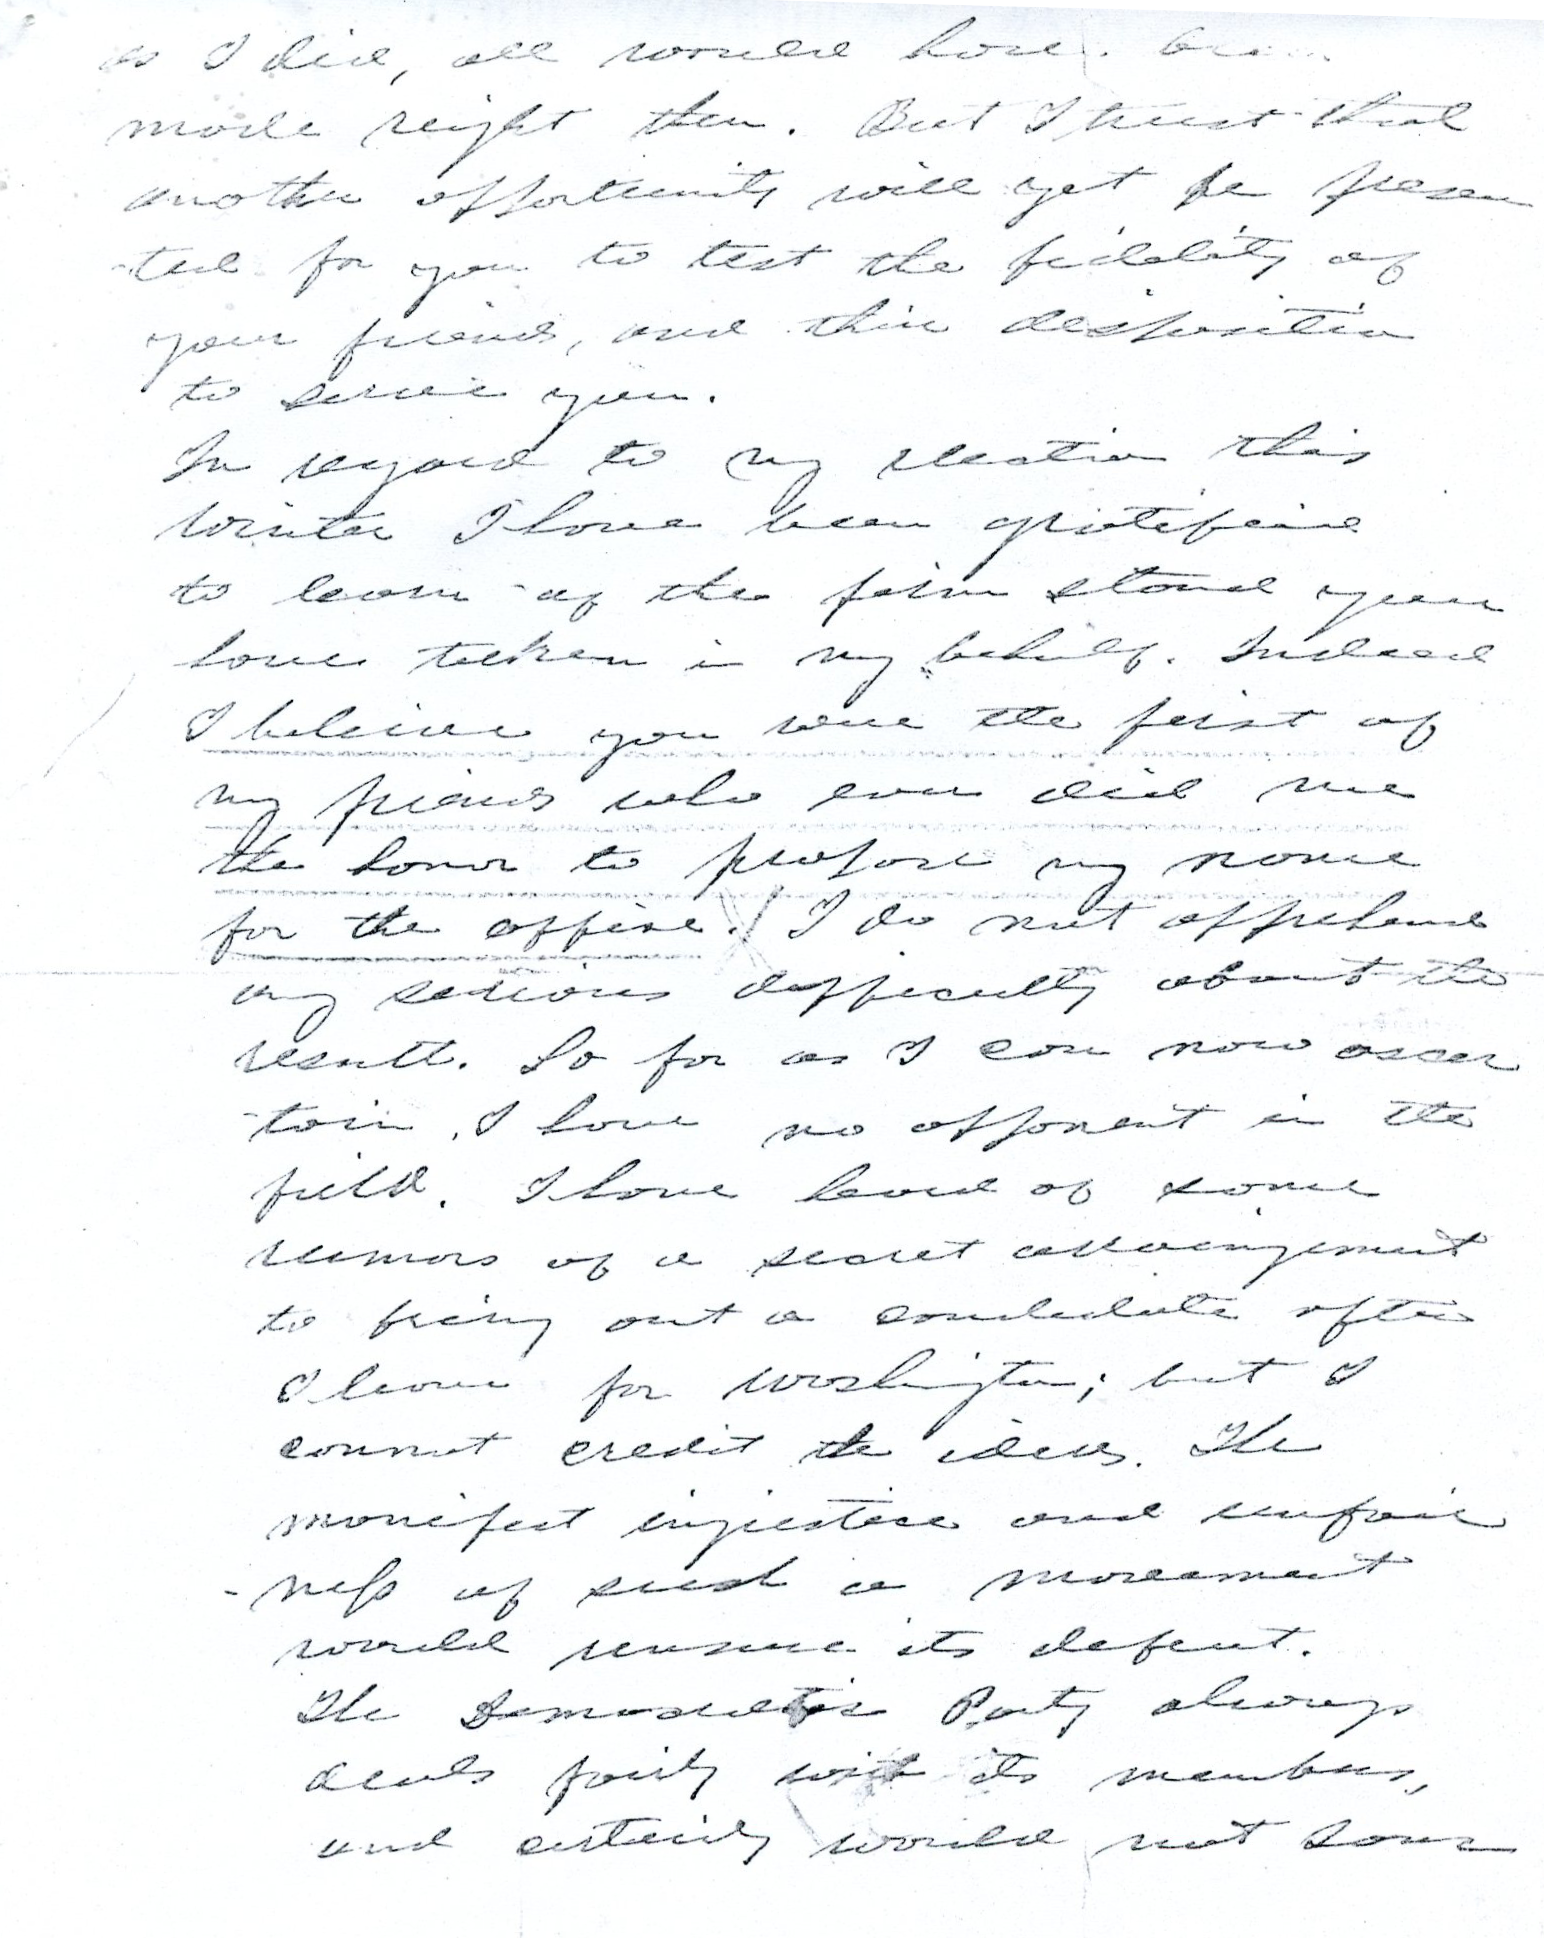 as I did, all would have been
made right then. But I trust that
another opportunity will yet be presen
-ted for you to test the fidelity of
your friends, and their disposition
to serve you.
In regard to my election this
winter I have been gratified
to learn of the firm stand you
have taken in my behalf. Indeed
I believe you were the first of
my friends who ever did me
the honor to propose my name
for the office. I do not apprehend
any serious difficulty about the
result. So far as I can now ascer
-tain, I have no opponent in the
field. I have heard of some
rumors of a secret arrangement
to bring out a candidate after
I leave for Washington; but I
cannot credit the idea. The
manifest injustice and unfair
-ness of such a movement
would ensure its defeat.
The Democratic Party always
deals fairly with its members,
and certainly would not